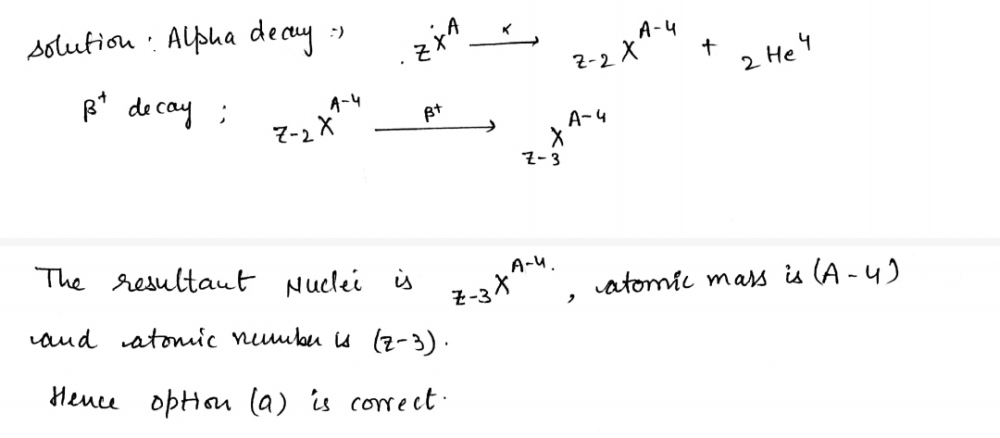 solution : Alpha decay :) . zXᴬ —α→ z-2Xᴬ⁻⁴ + ₂He⁴
β⁺ decay ; z-2Xᴬ⁻⁴ —β⁺→ z-3Xᴬ⁻⁴
The resultant Nuclei is z-3Xᴬ⁻⁴. , atomic mass is (A-4)
and atomic number is (z-3).
Hence option (a) is correct.